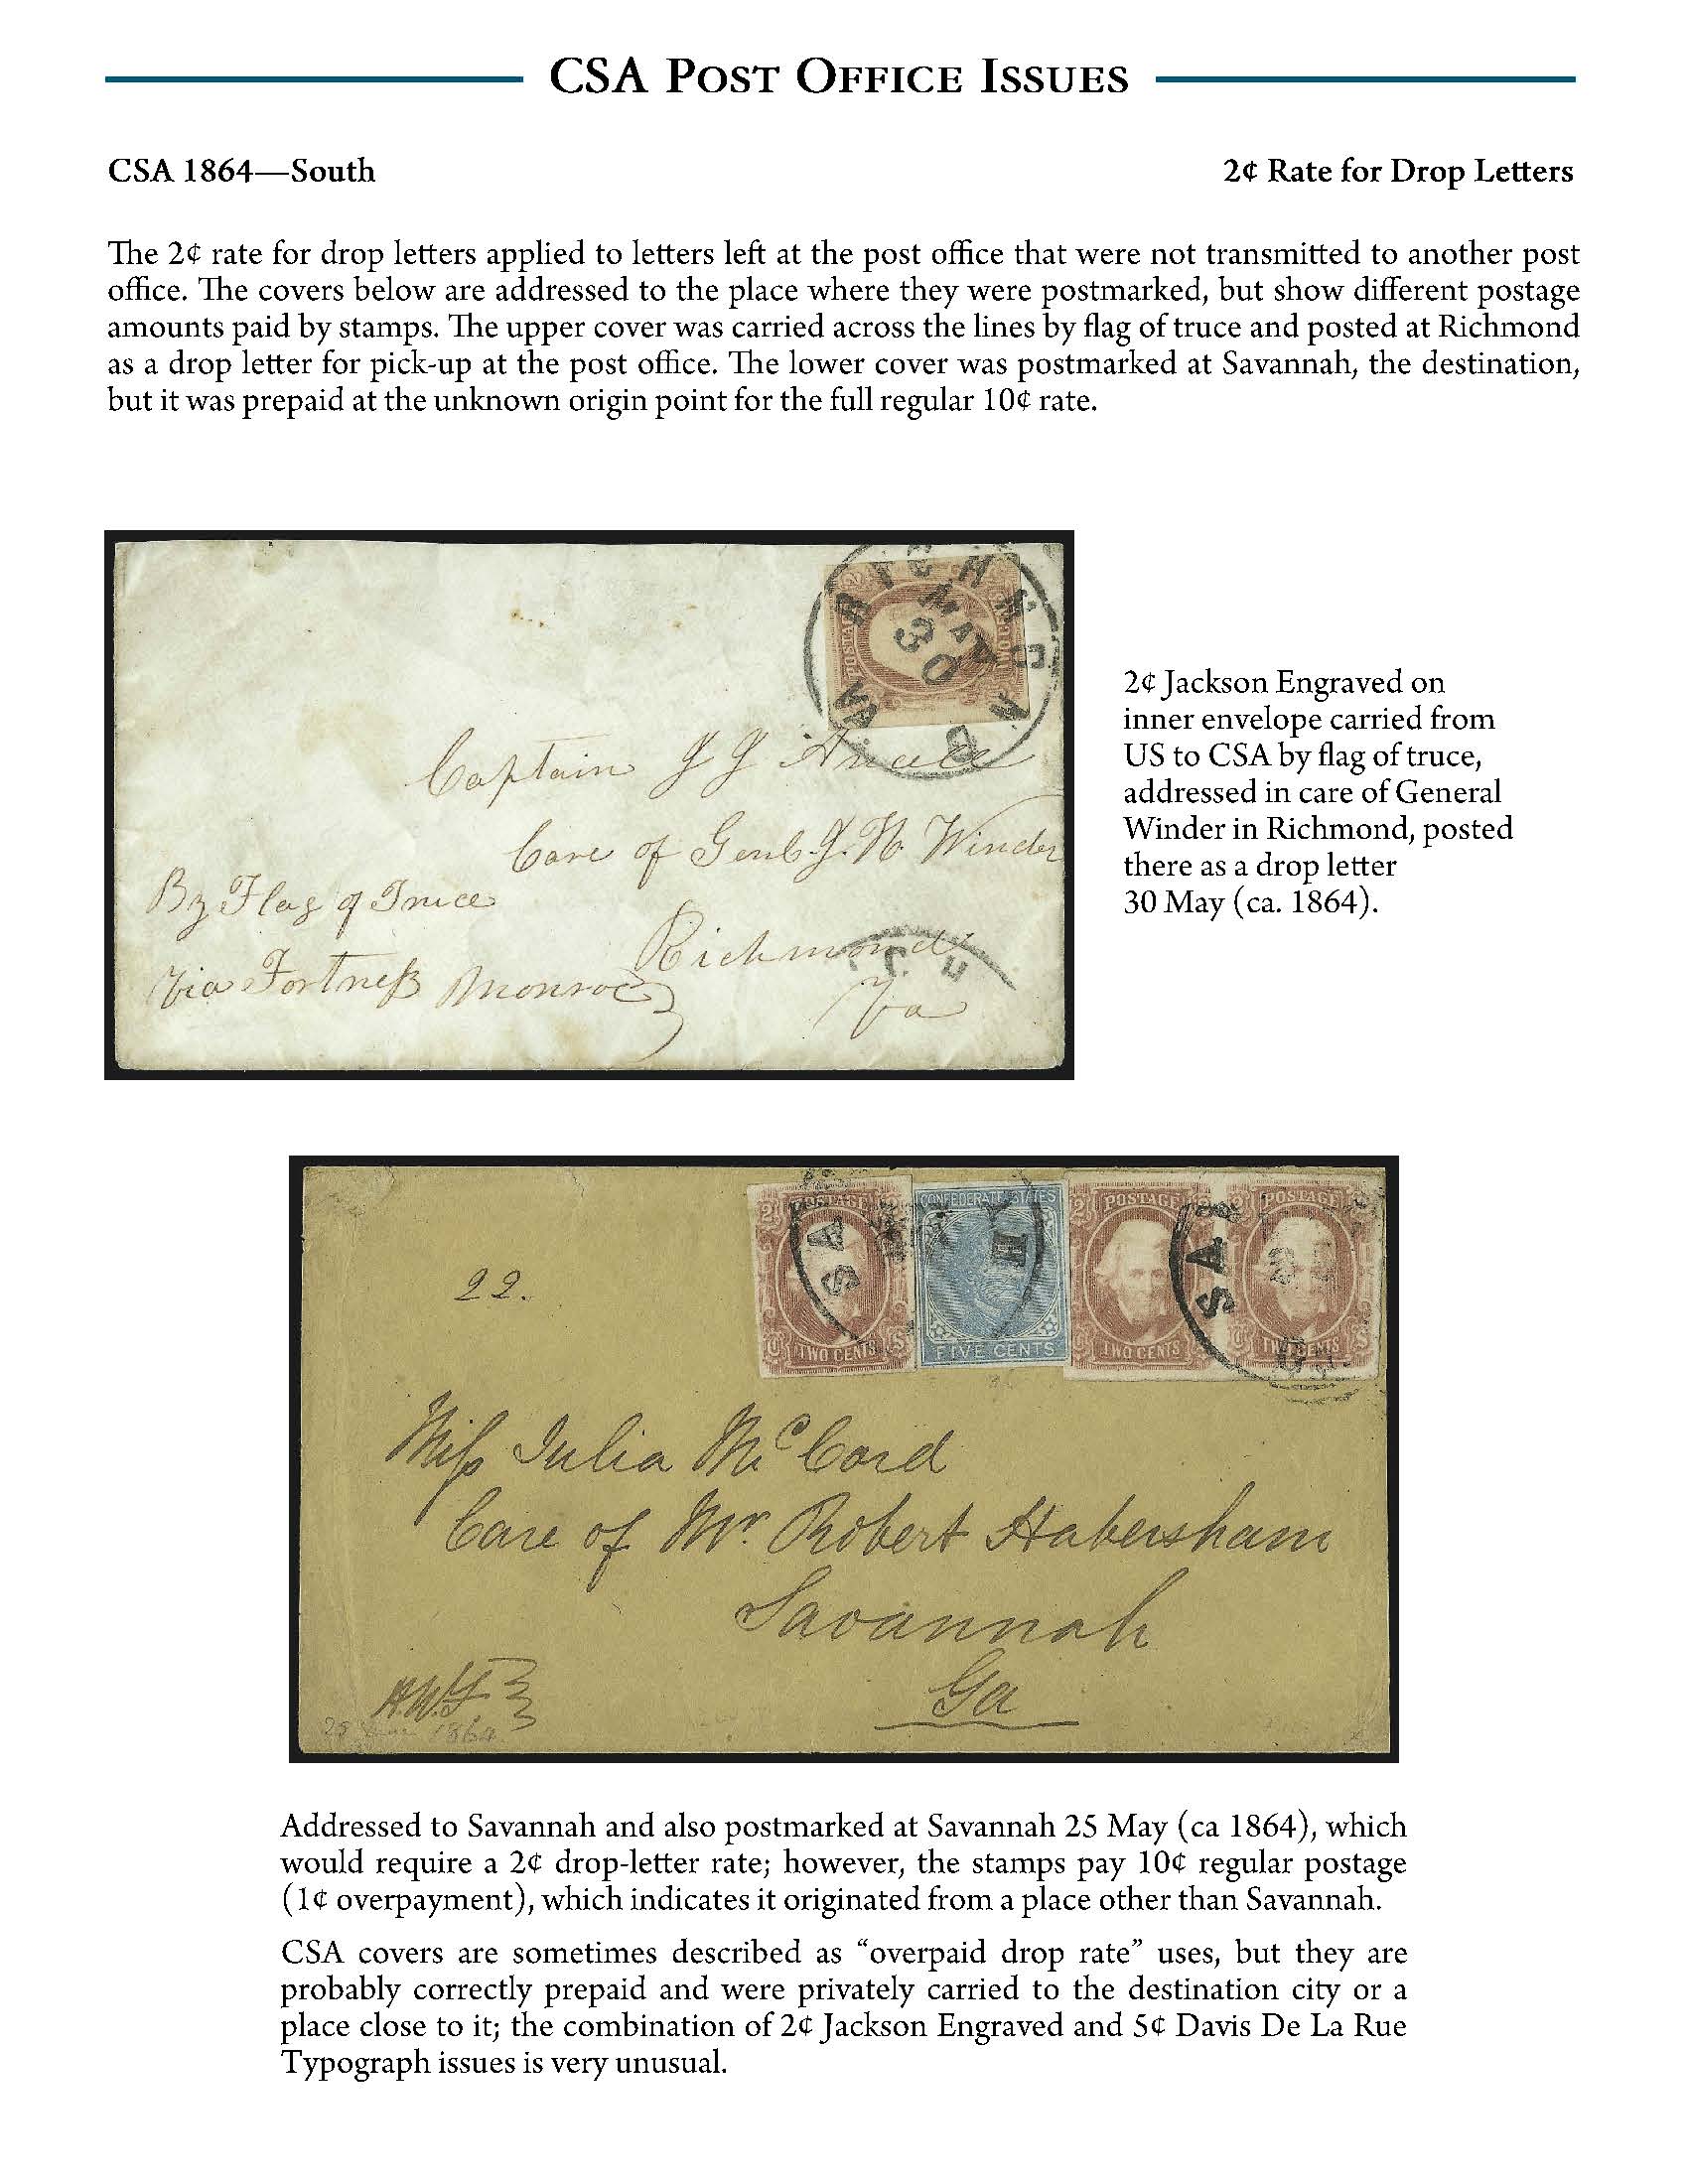 CSA Post Office Issues
CSA 1864—South
2¢ Rate for Drop Letters
The 2¢ rate for drop letters applied to letters left at the post office that were not transmitted to another post
office. The covers below are addressed to the place where they were postmarked, but show different postage
amounts paid by stamps. The upper cover was carried across the lines by flag of truce and posted at Richmond
as a drop letter for pick-up at the post office. The lower cover was postmarked at Savannah, the destination,
but it was prepaid at the unknown origin point for the full regular 10¢ rate.
RICHMOND VA.
MAY
30
Captain J J
Care of Genl. J. H. Winder
By Flag of Truce
Richmond
Via Fortress Monroe
Va
2¢ Jackson Engraved on
inner envelope carried from
US to CSA by flag of truce,
addressed in care of General
Winder in Richmond, posted
there as a drop letter
30 May (ca. 1864).
POSTAGE
CONFEDERATE STATES
POSTAGE
POSTAGE
SA
H
SAV
TWO CENTS
FIVE CENTS
TWO CENTS
TWO CENTS
22.
Miss Julia McCord
Care of Mr. Robert Habersham
Savannah
Ga
1864
Addressed to Savannah and also postmarked at Savannah 25 May (ca 1864), which
would require a 2¢ drop-letter rate; however, the stamps pay 10¢ regular postage
(1¢ overpayment), which indicates it originated from a place other than Savannah.
CSA covers are sometimes described as “overpaid drop rate” uses, but they are
probably correctly prepaid and were privately carried to the destination city or a
place close to it; the combination of 2¢ Jackson Engraved and 5¢ Davis De La Rue
Typograph issues is very unusual.